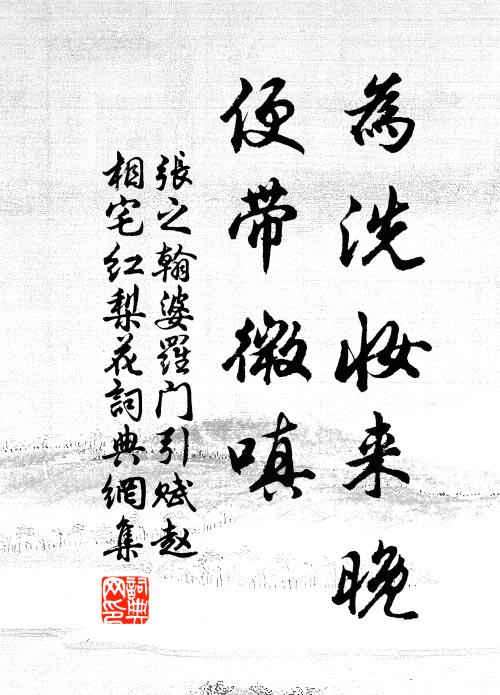 為洗妆来晚
便带微嗔
張之翰婆羅门引赋赵
相宅红梨花詞典網集
詞典网印